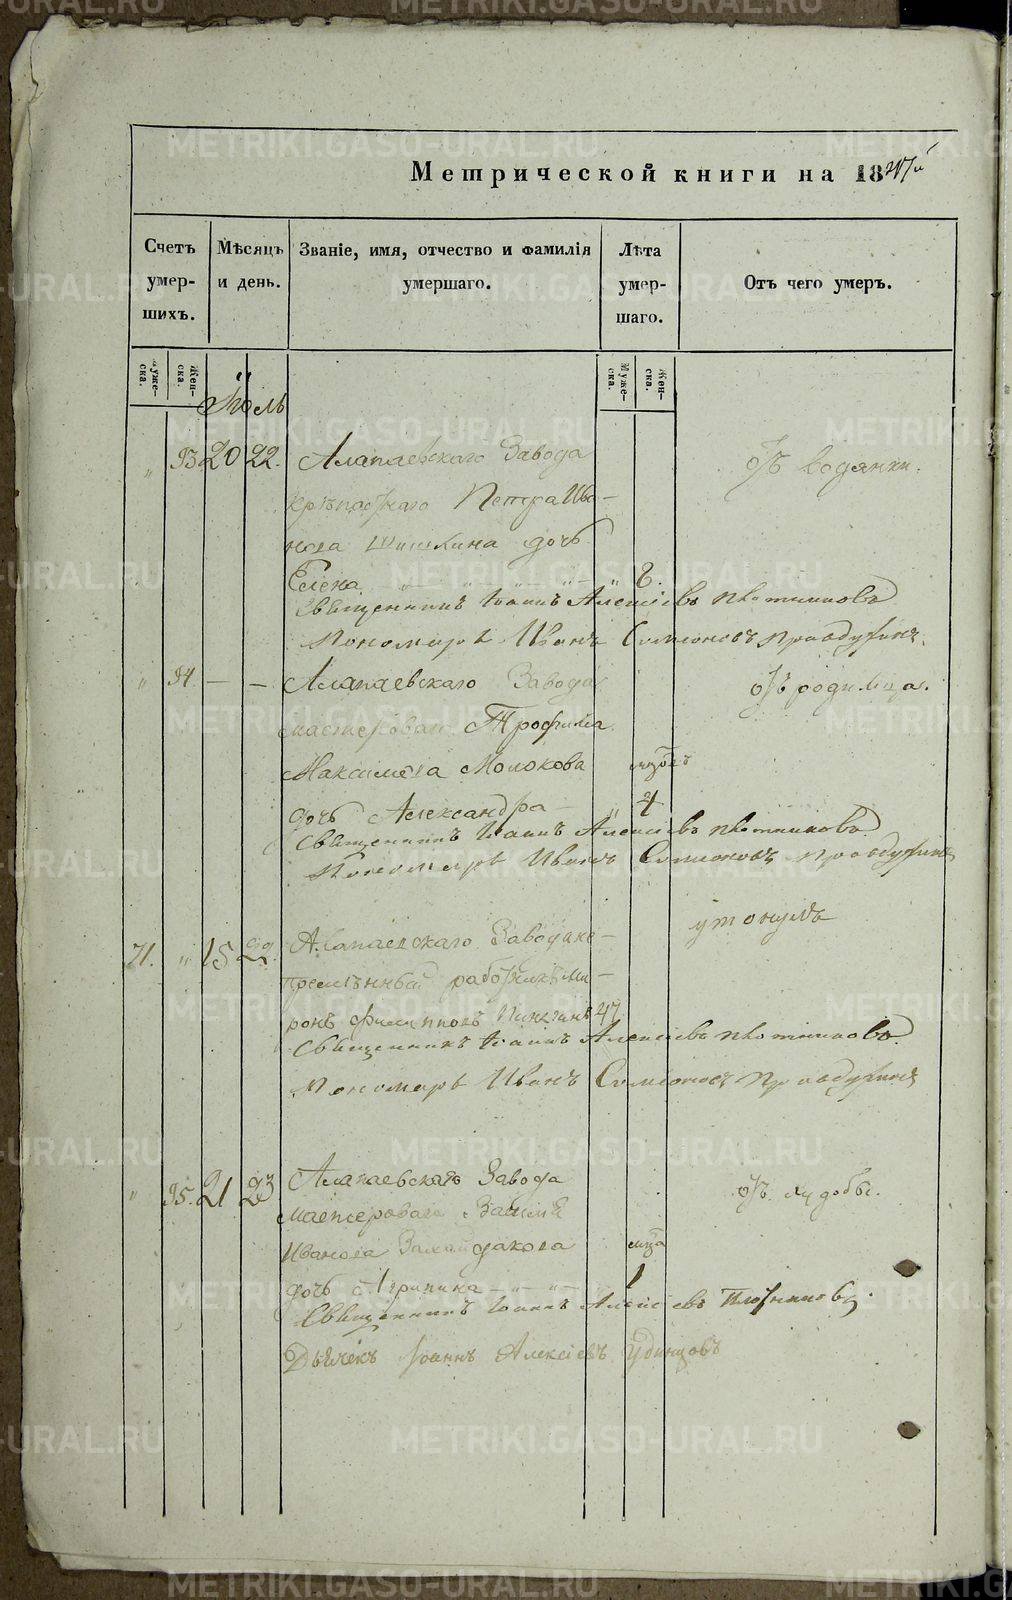 Метрической книги на 1847й
Счетъ умер- шихъ.
Мѣсяцъ и день.
Званіе, имя, отчество и фамилія умершаго.
Лѣта умер- шаго.
Отъ чего умеръ.
Муже- ска.
Жен- ска.
Муже- ска.
Жен- ска.
Іюль
" 93 20 22. Алапаевскаго Завода отъ водянки.
крѣпостнаго Петра Ива-
нова Шишкина дочь
Елена " 8.
Священникъ Іоаннъ Алексіевъ Плотниковъ
Пономарь Иванъ Симеоновъ Правдухинъ.
" 94. — — Алапаевскаго Завода отъ родимца.
мастероваго Трофима
Максимова Молокова
дочь Александра — " 4
Священникъ Іоаннъ Алексіевъ Плотниковъ.
Пономарь Иванъ Симеоновъ Правдухинъ
71. " 15 22. Алапаевскаго Завода не- утонулъ
премѣнный работникъ Ми-
ронъ Филипповъ 47
Священникъ Іоаннъ Алексіевъ Плотниковъ.
Пономарь Иванъ Симеоновъ Правдухинъ
" 95. 21 23 Алапаевскаго Завода отъ худобы.
мастероваго Василія
Иванова мца
дочь Агрипина — " — " — 1
Священникъ Іоаннъ Алексіевъ Плотниковъ.
Дьячекъ Іоаннъ Алексіевъ Удинцовъ
METRIKI.GASO-URAL.RU